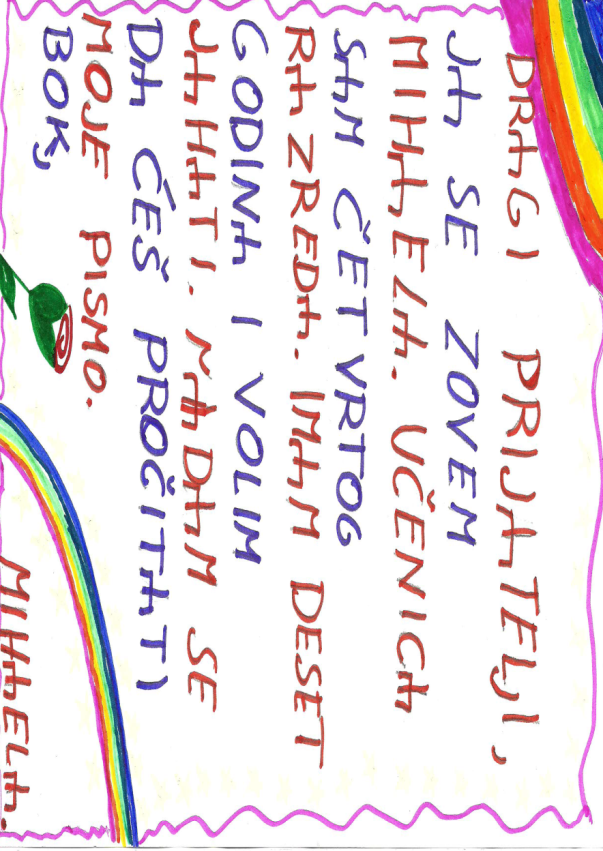 DRAGI PRIJATELJI,
JA SE ZOVEM
MIHAELA. UČENICA
SAM ČETVRTOG
RAZREDA. IMAM DESET
GODINA I VOLIM
JAHATI. NADAM SE
DA ĆEŠ PROČITATI
MOJE PISMO.
BOK,
MIHAELA.